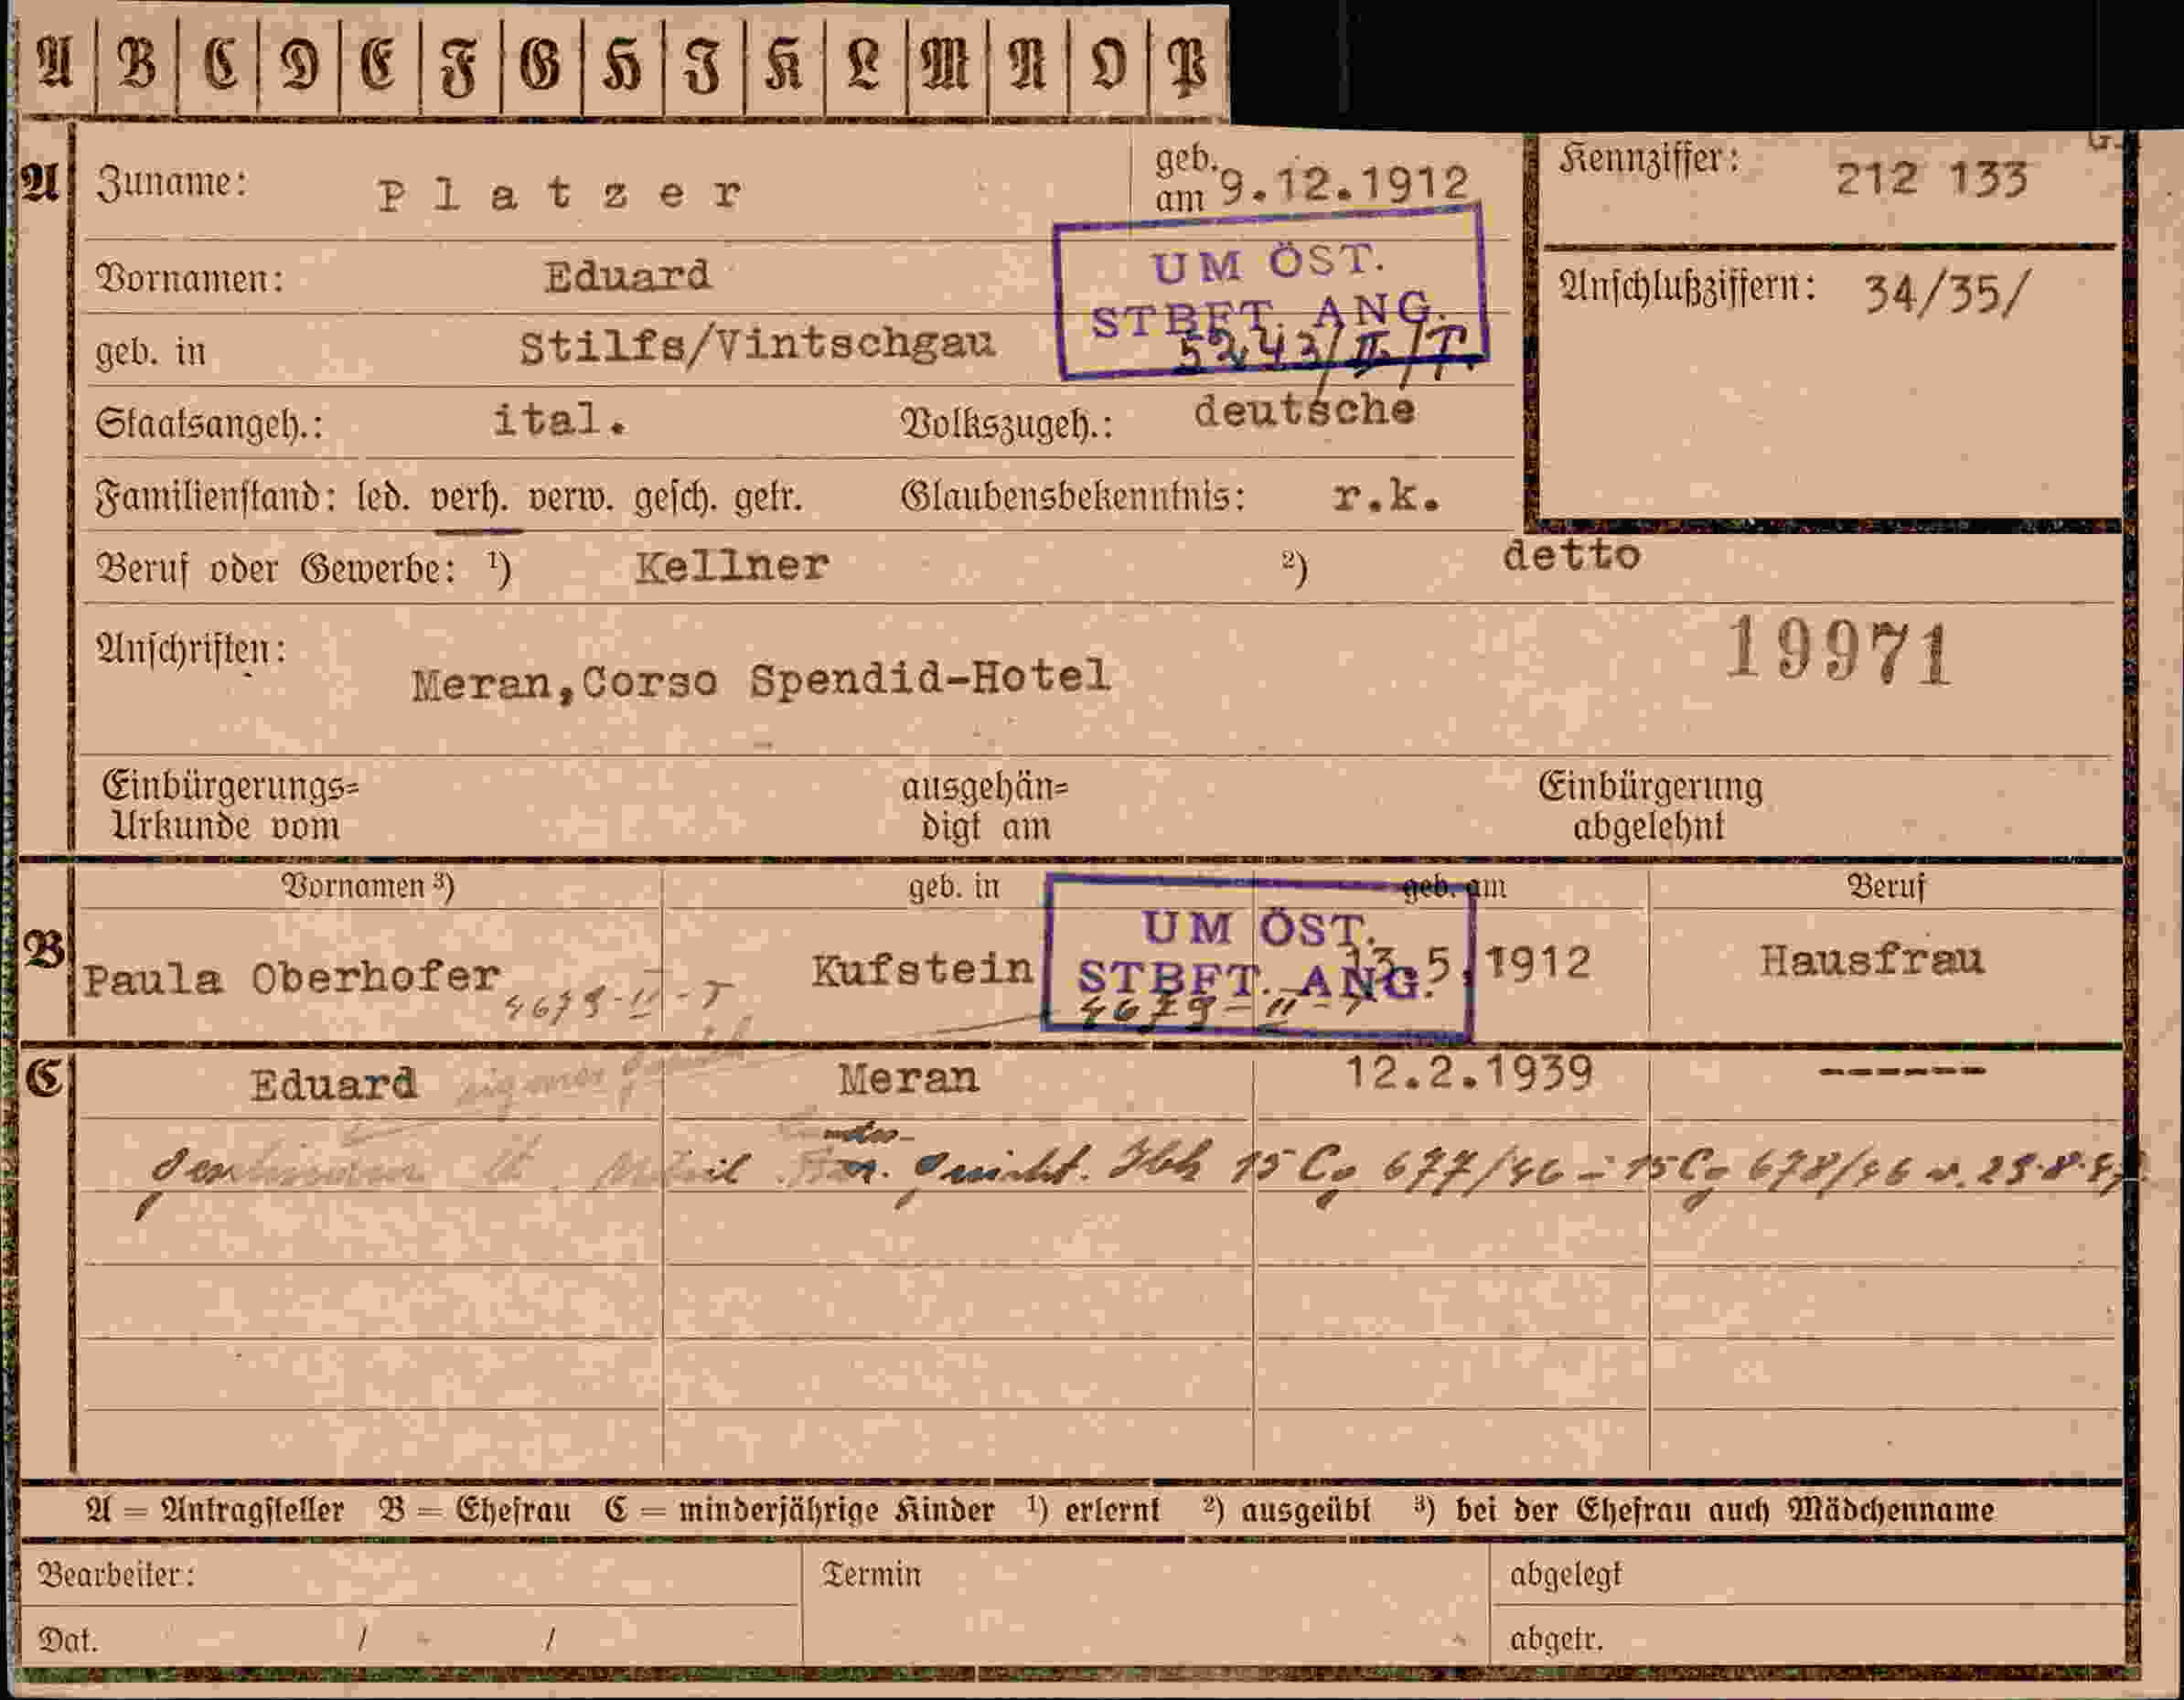 A B C D E F G H I K L M N O P
A Zuname: Platzer geb. am 9.12.1912 Kennziffer: 212 133 G.
Vornamen: Eduard UM ÖST. Anschlußziffern: 34/35/
STBFT. ANG.
geb. in Stilfs/Vintschgau 5243/II/T.
Staatsangeh.: ital. Volkszugeh.: deutsche
Familienstand: led. verh. verw. gesch. getr. Glaubensbekenntnis: r.k.
Beruf oder Gewerbe: 1) Kellner 2) detto
Anschriften: 19971
Meran,Corso Spendid-Hotel
Einbürgerungs= ausgehän= Einbürgerung
Urkunde vom digt am abgelehnt
Vornamen 3) geb. in geb. am Beruf
UM ÖST.
B Paula Oberhofer Kufstein 13.5.1912 Hausfrau
STBFT. ANG.
4679-II-T 4679-II-T
C Eduard Meran 12.2.1939 ------
15 Cg 677/46 - 15 Cg 678/46 v. 29.8.
A = Antragsteller B = Ehefrau C = minderjährige Kinder 1) erlernt 2) ausgeübt 3) bei der Ehefrau auch Mädchenname
Bearbeiter: Termin abgelegt
Dat. / / abgetr.